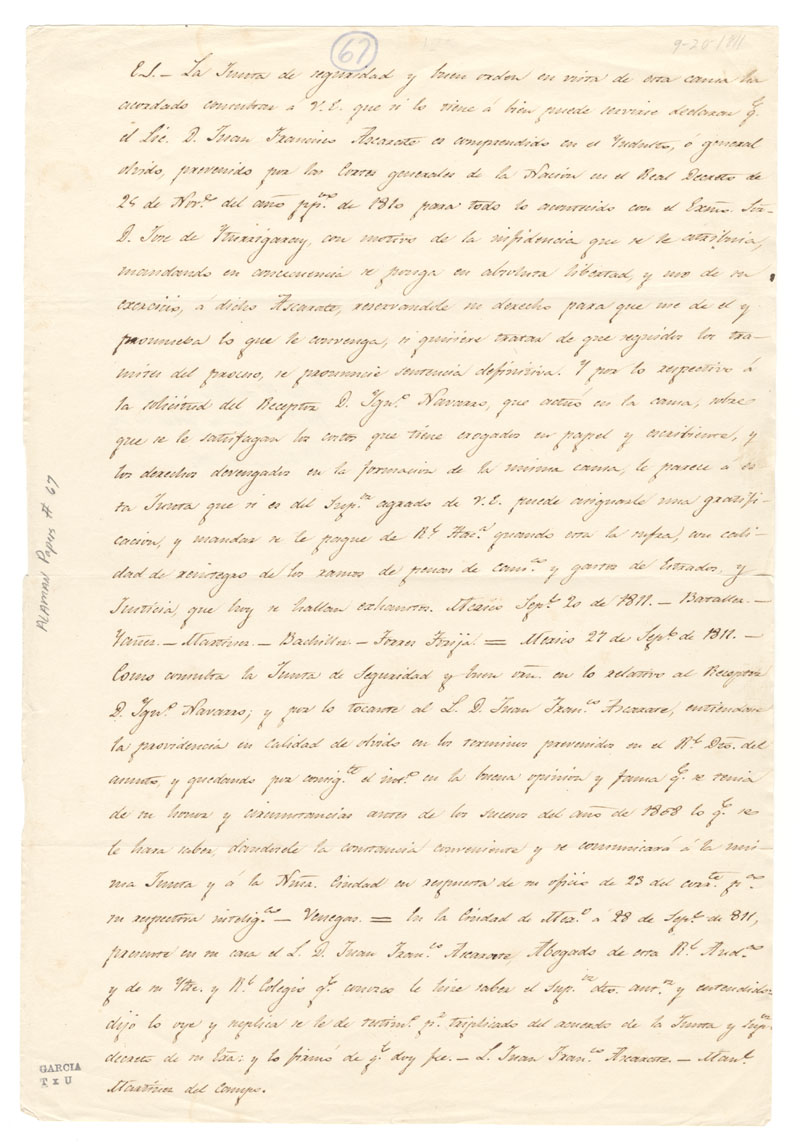 67
9-20-1811
E.S. – La Junta de seguridad y buen orden en vista de esta causa ha
acordado consultar á V.E. que si lo tiene á bien puede servirse declarar q.e
el Lic. D. Juan Francisco Ascarate es comprendido en el Yndulto, ó general
olvido, prevenido por las Cortes generales de la Nacion en el Real Decreto de
25 de Nov.e del año pp.do de 1810 para todo lo acontecido con el Exmo. Sor.
D. Jose de Yturrigaray, con motivo de la infidencia que se le atribuia,
mandando en concecuencia se ponga en absoluta libertad, y uso de su
exercicio, á dicho Ascarate, reservandole su derecho para que use de el y
promueba lo que le convenga, si quisiere tratar de que seguidos los tra-
mites del proceso, se pronuncie sentencia definitiva. Y por lo respectivo á
la solicitud del Receptor D. Ygn.o Navarro, que actuó en la causa, sobre
que se le satisfagan los costos que tiene erogados en papel y escribiente, y
los derechos devengados en la formacion de la misma causa, le parece á es-
ta Junta que si es del Sup.or agrado de V.E. puede asignarle una gratifi-
cacion, y mandar se le pague de R.l Haz.da quando esta la sufra, con cali-
dad de reintegro de los ramos de penas de cam.ra y gastos de Estrados, y
Justicia, que hoy se hallan exhaustos. Mexico Sep.e 20 de 1811. – Bataller. –
Yañez. – Martinez. – Bachiller. – Torres Torija. = Mexico 27 de Sep.e de 1811. –
Como consulta la Junta de Seguridad y buen orn. en lo relativo al Receptor
D. Ygn.o Navarro; y por lo tocante al L. D. Juan Fran.co Ascarate, entiendase
la providencia en calidad de olvido en los terminos prevenidos en el R.l Dto. del
asunto, y quedando por consig.te el int.o en la buena opinion y fama q.e se tenia
de su honor y circunstancias antes de los sucesos del año de 1808 lo q.e se
le hará saber, dandosele la constancia conveniente y se comunicará á la mis-
ma Junta y á la Nma. Ciudad en respuesta de su oficio de 23 del corr.te p.a
su respectiva intelig.cia – Venegas. = En la Ciudad de Mex.o á 28 de Sep.e de 811,
presente en su casa el L. D. Juan Fran.co Ascarate, Abogado de esta R.l Aud.cia
y de su Ytre. y R.l Colegio q.e conozco le hize saber el Sup.or dto. ant.or y entendido
dijo lo oye y suplica se le dé testim.o p.r triplicado del acuerdo de la Junta y Sup.or
decreto de su Exa: y lo firmó de q.e doy fee. – L. Juan Fran.co Ascarate. – Man.l
Martinez del Campo.
ALAMAN Papers # 67
GARCIA
T x U